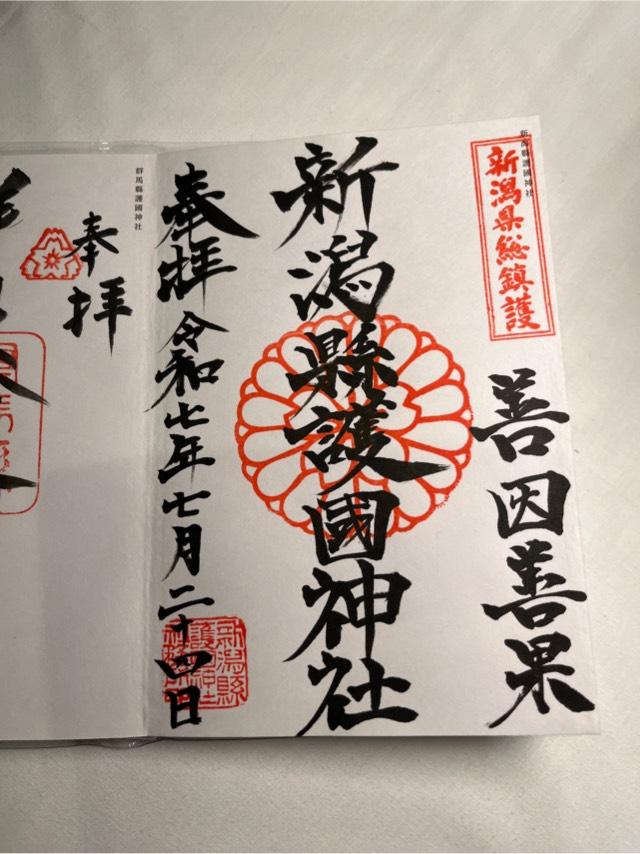 新潟縣護國神社
新潟県総鎮護
善因善果
新潟縣護國神社
奉拝
令和七年七月二十四日
新潟縣護國神社
群馬縣護國神社
奉拝